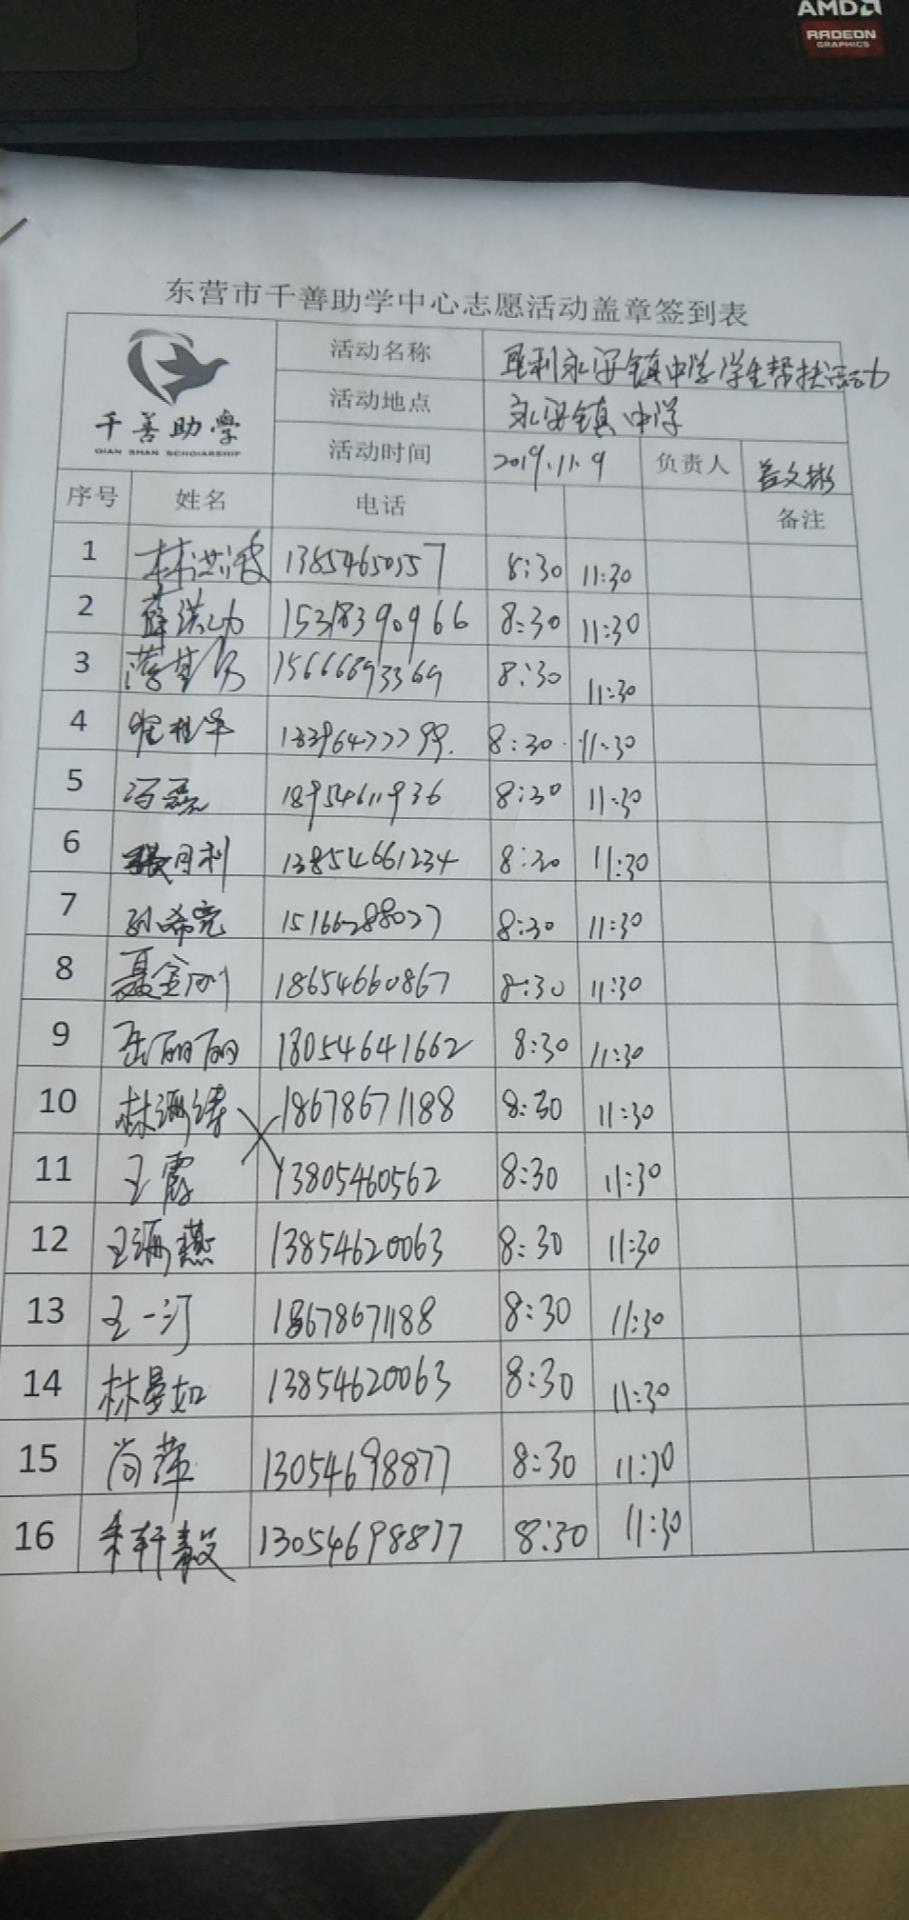 AMD
RADEON
GRAPHICS
东营市千善助学中心志愿活动盖章签到表
千善助學
QIAN SHAN SCHOLARSHIP
活动名称 垦利永安镇中学学生帮扶活动
活动地点 永安镇中学
活动时间 2019.11.9 负责人
序号 姓名 电话 备注
1 林洪波 13854650557 8:30 11:30
2 15318390966 8:30 11:30
3 15666893369 8:30 11:30
4 13396477799. 8:30 11:30
5 冯磊 18954611936 8:30 11:30
6 张月利 13854661234 8:30 11:30
7 孙希亮 15166288027 8:30 11:30
8 聂金刚 18654660867 8:30 11:30
9 岳丽丽 18054641662 8:30 11:30
10 林珊 18678671188 8:30 11:30
11 王霞 13805460562 8:30 11:30
12 王珊燕 13854620063 8:30 11:30
13 王一汀 18678671188 8:30 11:30
14 林曼如 13854620063 8:30 11:30
15 尚萍 13054698877 8:30 11:30
16 轩毅 13054698877 8:30 11:30